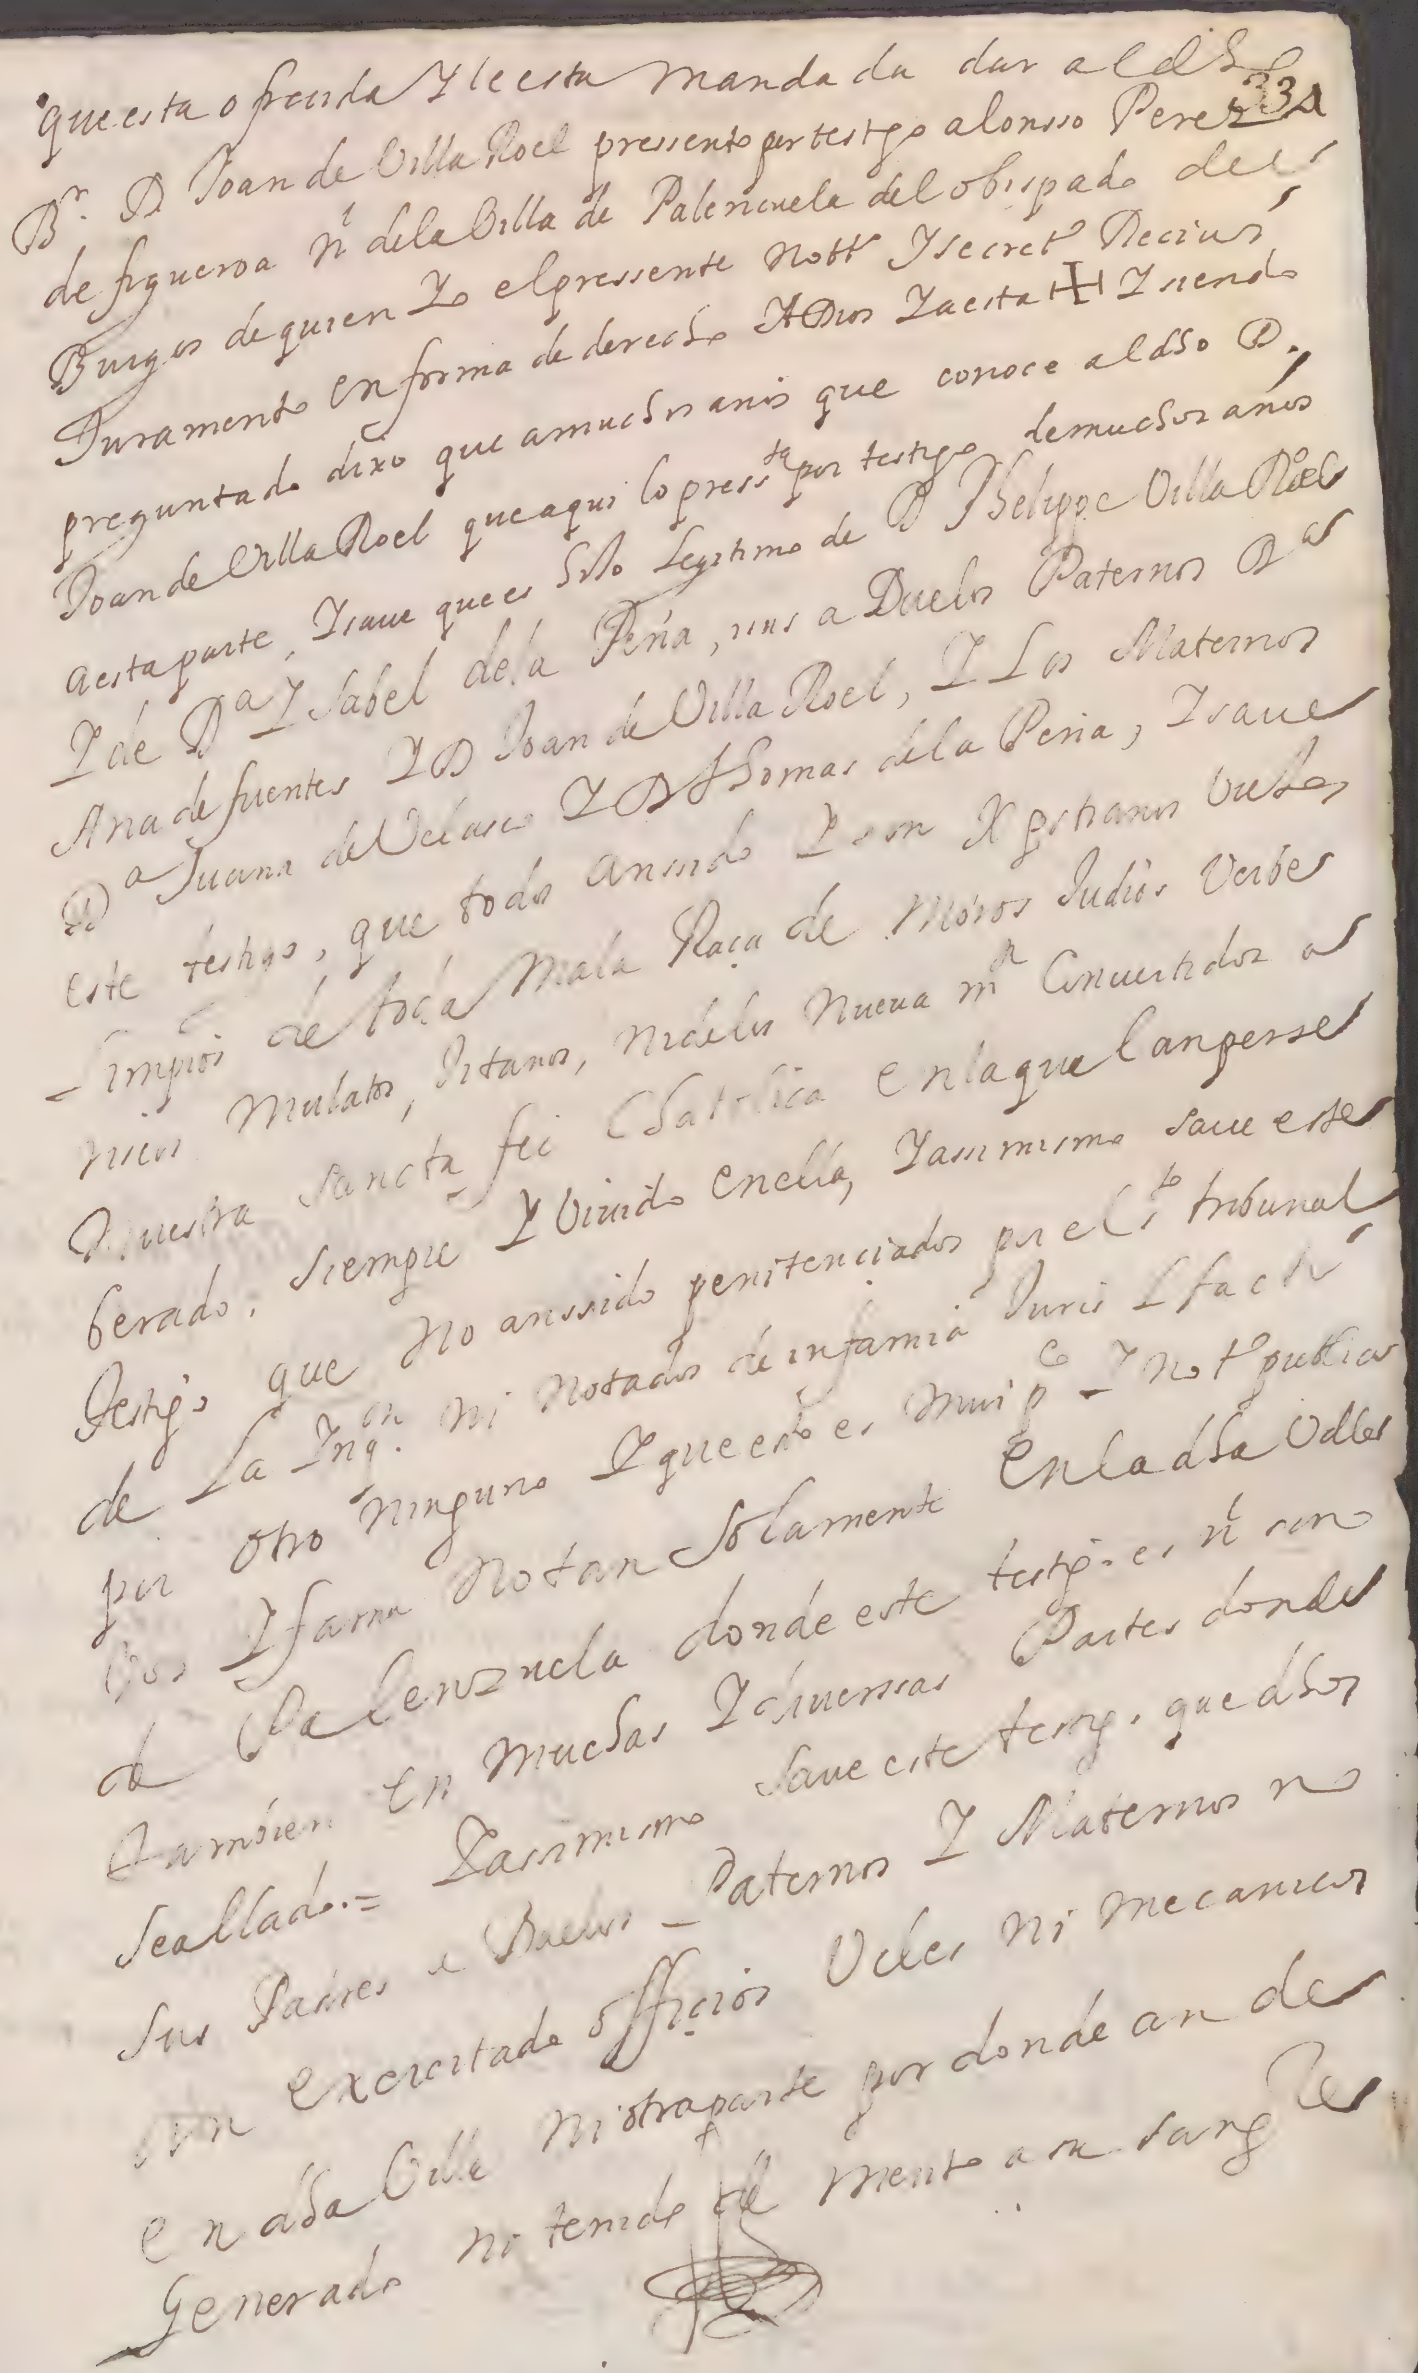 que esta ofrecida Y le esta mandada dar al dho
334
Br. D Joan de Villa Roel pressento por testigo alonsso Perez
de figueroa nº de la Villa de Palençuela del obispado de
Burgos de quien Yo el pressente nottº Y secretº Reciui
Juramento en forma de derecho A Dios Y a esta ✝ Y siendo
preguntado dixo que a muchos años que conoce al dho D.
Joan de Villa Roel que aqui lo presstª por testigo de muchos años
a esta parte, Y saue que es hijo legitimo de D Phelippe Villa Roel
Y de Dª Ysabel de la Peña, y sus aBuelos Paternos Dª
Ana de fuentes Y D Joan de Villa Roel, Y Los Maternos
Dª Juana de Velasco Y D thomas de la Peña, Y saue
este testigo, que todos an ssido Y son Xpstianos viejos
Limpios de toda Mala Raça de Moros Judios Verbe
riscos Mulatos, Jitanos, ni de los Nueua mte Conuertidos a
Nuestra sancta fee Chatolica en la que an perse
berado, siempre Y viuido en ella, Y assi mismo saue este
testigo que No an ssido penitenciados por el sto tribunal
de La Inqon. ni notados de infamia Juris Y facti
por otro ninguno Y que esto es mui pco Y notº publica
vos Y fama no tan solamente en la dha Villa
de Palenzuela donde este testigo. es nº sino
tambien en muchas Y diuerssas Partes donde
se a llado.= Y assimismo saue este testigo. que dhos
sus Padres e aBuelos Paternos Y Maternos no
an exercitado officios Viles ni mecanicos
en dha Villa ni otra parte por donde an de
Generado ni tenido mento a su sangre